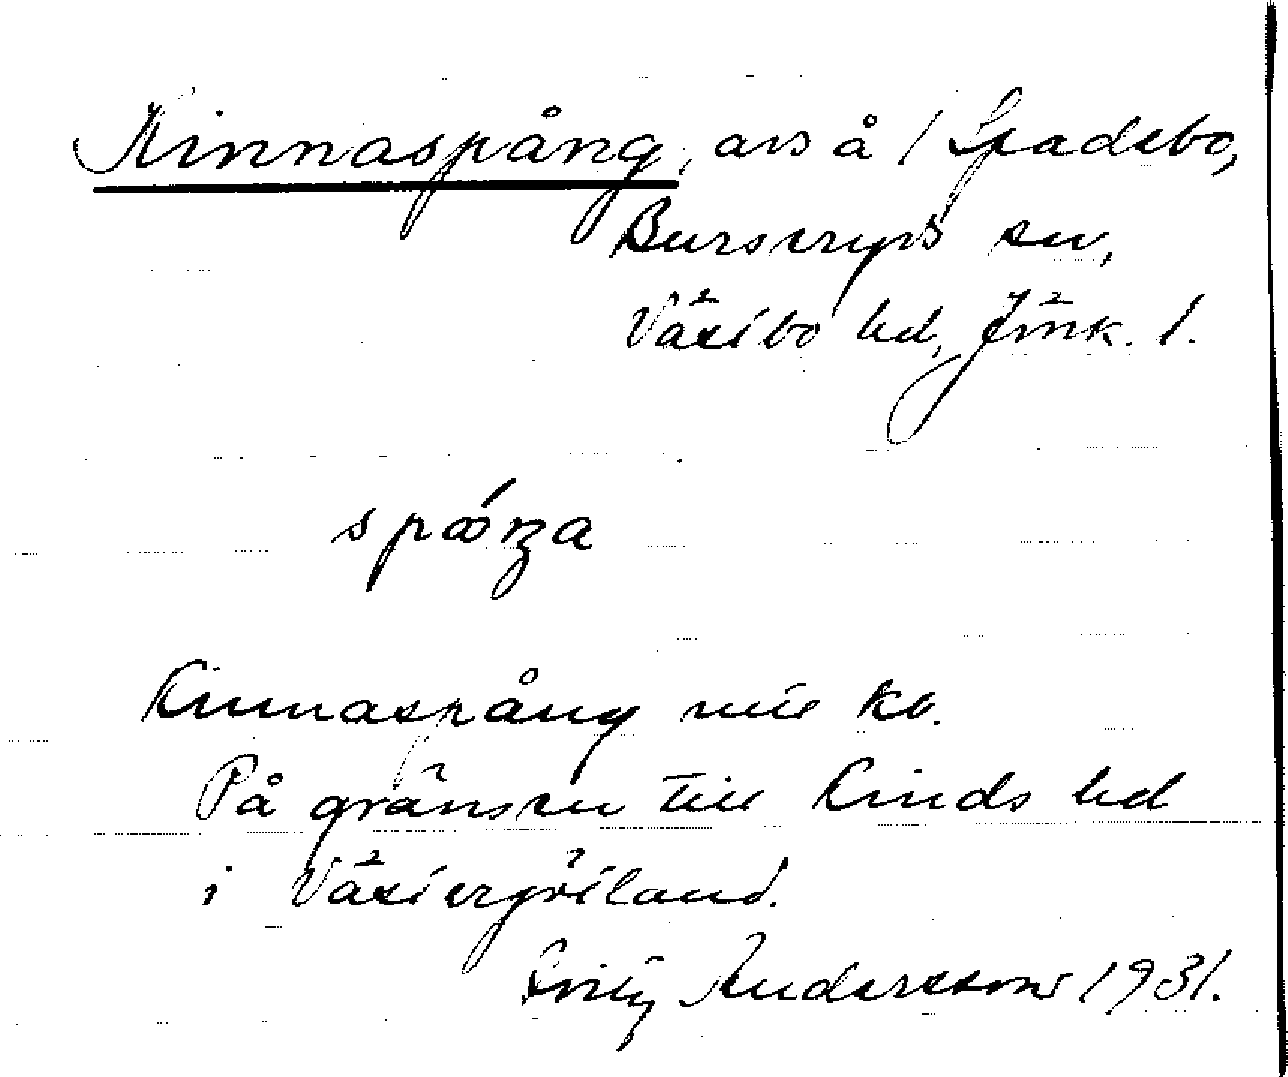 Kinnaspång, avs å / Spadebo,
Burseryds sn,
Västbo hd, Jönk. l.
spåŋa
Kinnaspång nie kb.
På gränsen till Kinds hd
i Västergötland.
Fritz Andersson 1931.